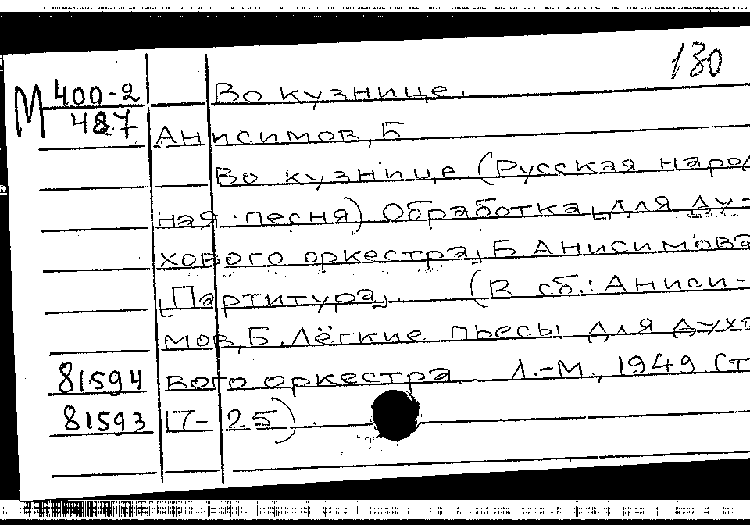 130
М 400-2 Во кузнице.
487 Анисимов, Б
Во кузнице (Русская народ
ная песня) Обработка [для ду-
хового оркестра] Б Анисимова
[Партитура]. (В сб.: Аниси-
мов, Б. Лёгкие пьесы для духо
81594 вого оркестра Л.-М., 1949 Ст
81593 17-25)